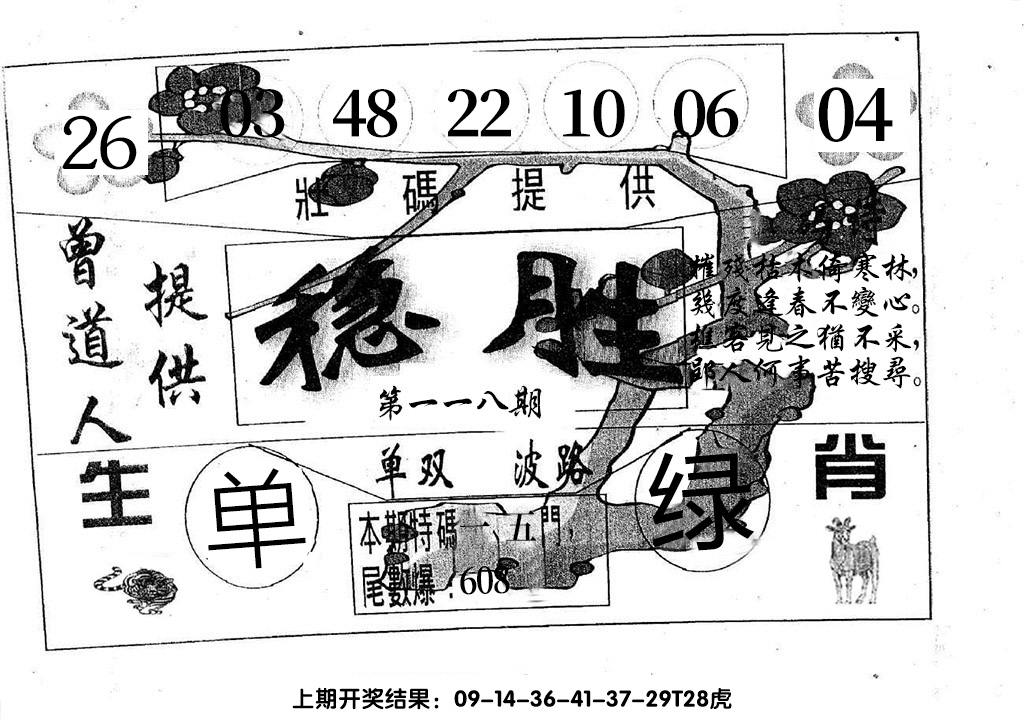 26 03 48 22 10 06 04
壯碼提供
特
曾道人
提供
稳胜
第一一八期
摧殘枯木倚寒林，
幾度逢春不變心。
樵客見之猶不采，
郢人何事苦搜尋。
单双 波路
生肖
单
绿
本期特碼一、五門，
尾數爆：608
上期开奖结果：09-14-36-41-37-29T28虎